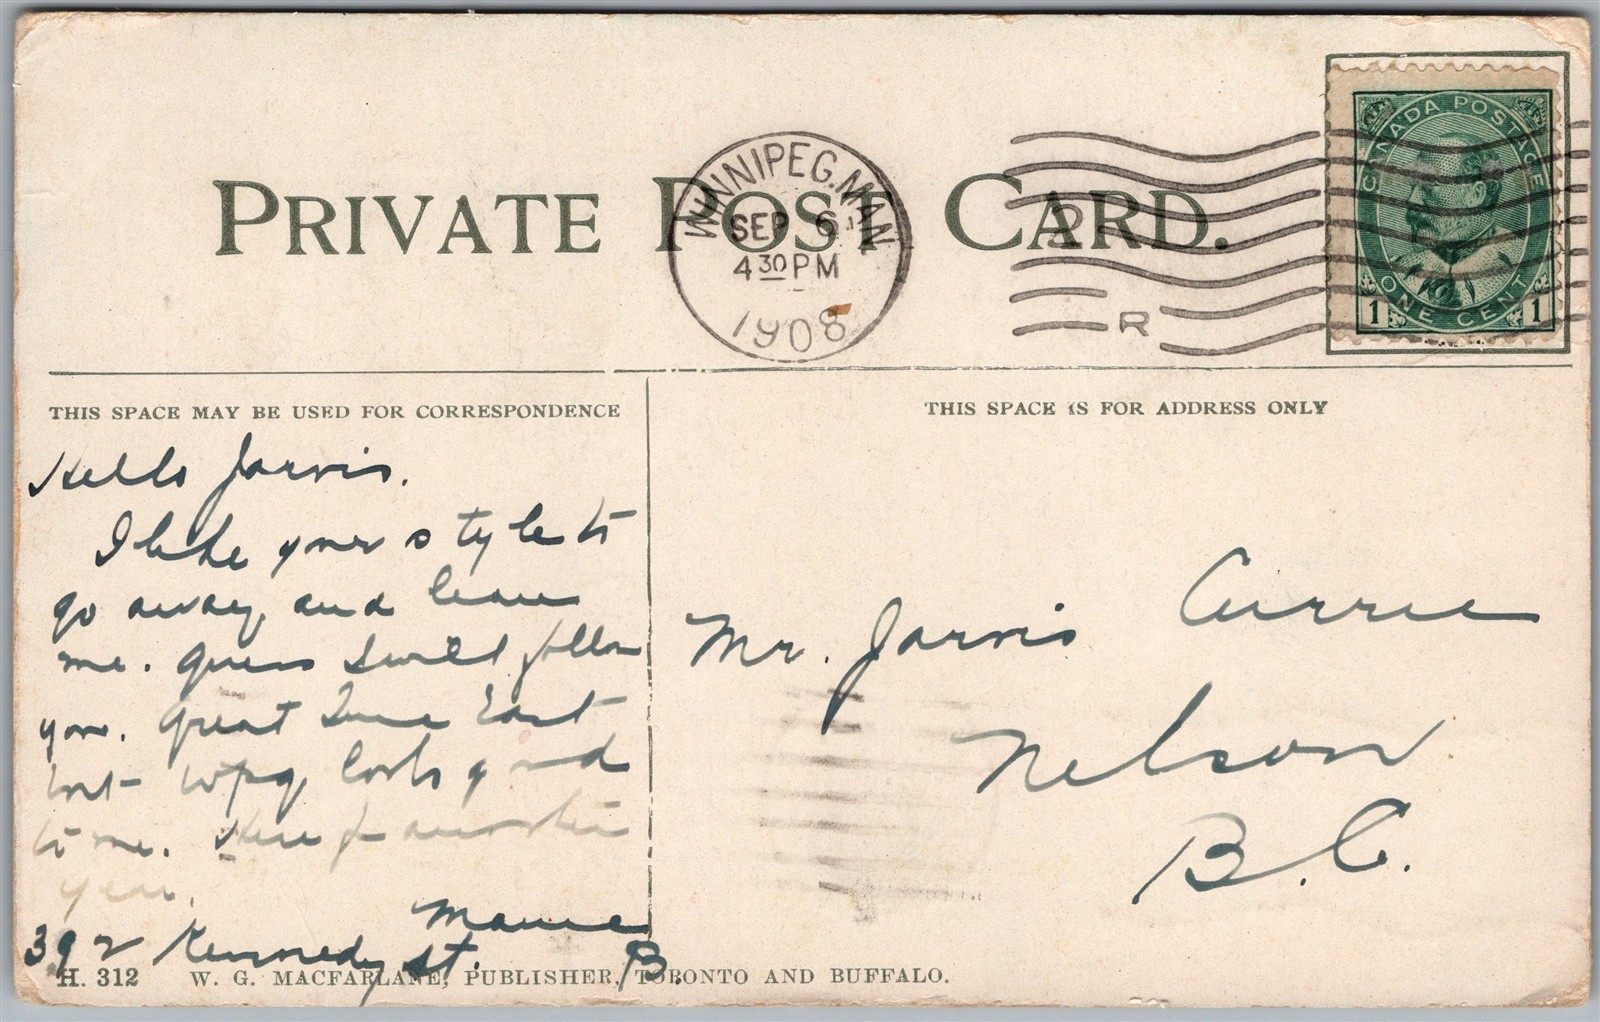 PRIVATE POST CARD.
WINNIPEG.MAN
SEP 6
4 30 PM
1908
R
CANADA POSTAGE
ONE CENT
1 1
THIS SPACE MAY BE USED FOR CORRESPONDENCE
THIS SPACE IS FOR ADDRESS ONLY
Hello Jarvis.
I like your style to
go away and leave
me. Guess I will follow
you. Great Time East
but Wpg looks good
to me. Here for another
year.
Mamie
B.
392 Kennedy St.
Mr. Jarvis Currie
Nelson
B.C.
H. 312 W. G. MACFARLANE, PUBLISHER, TORONTO AND BUFFALO.